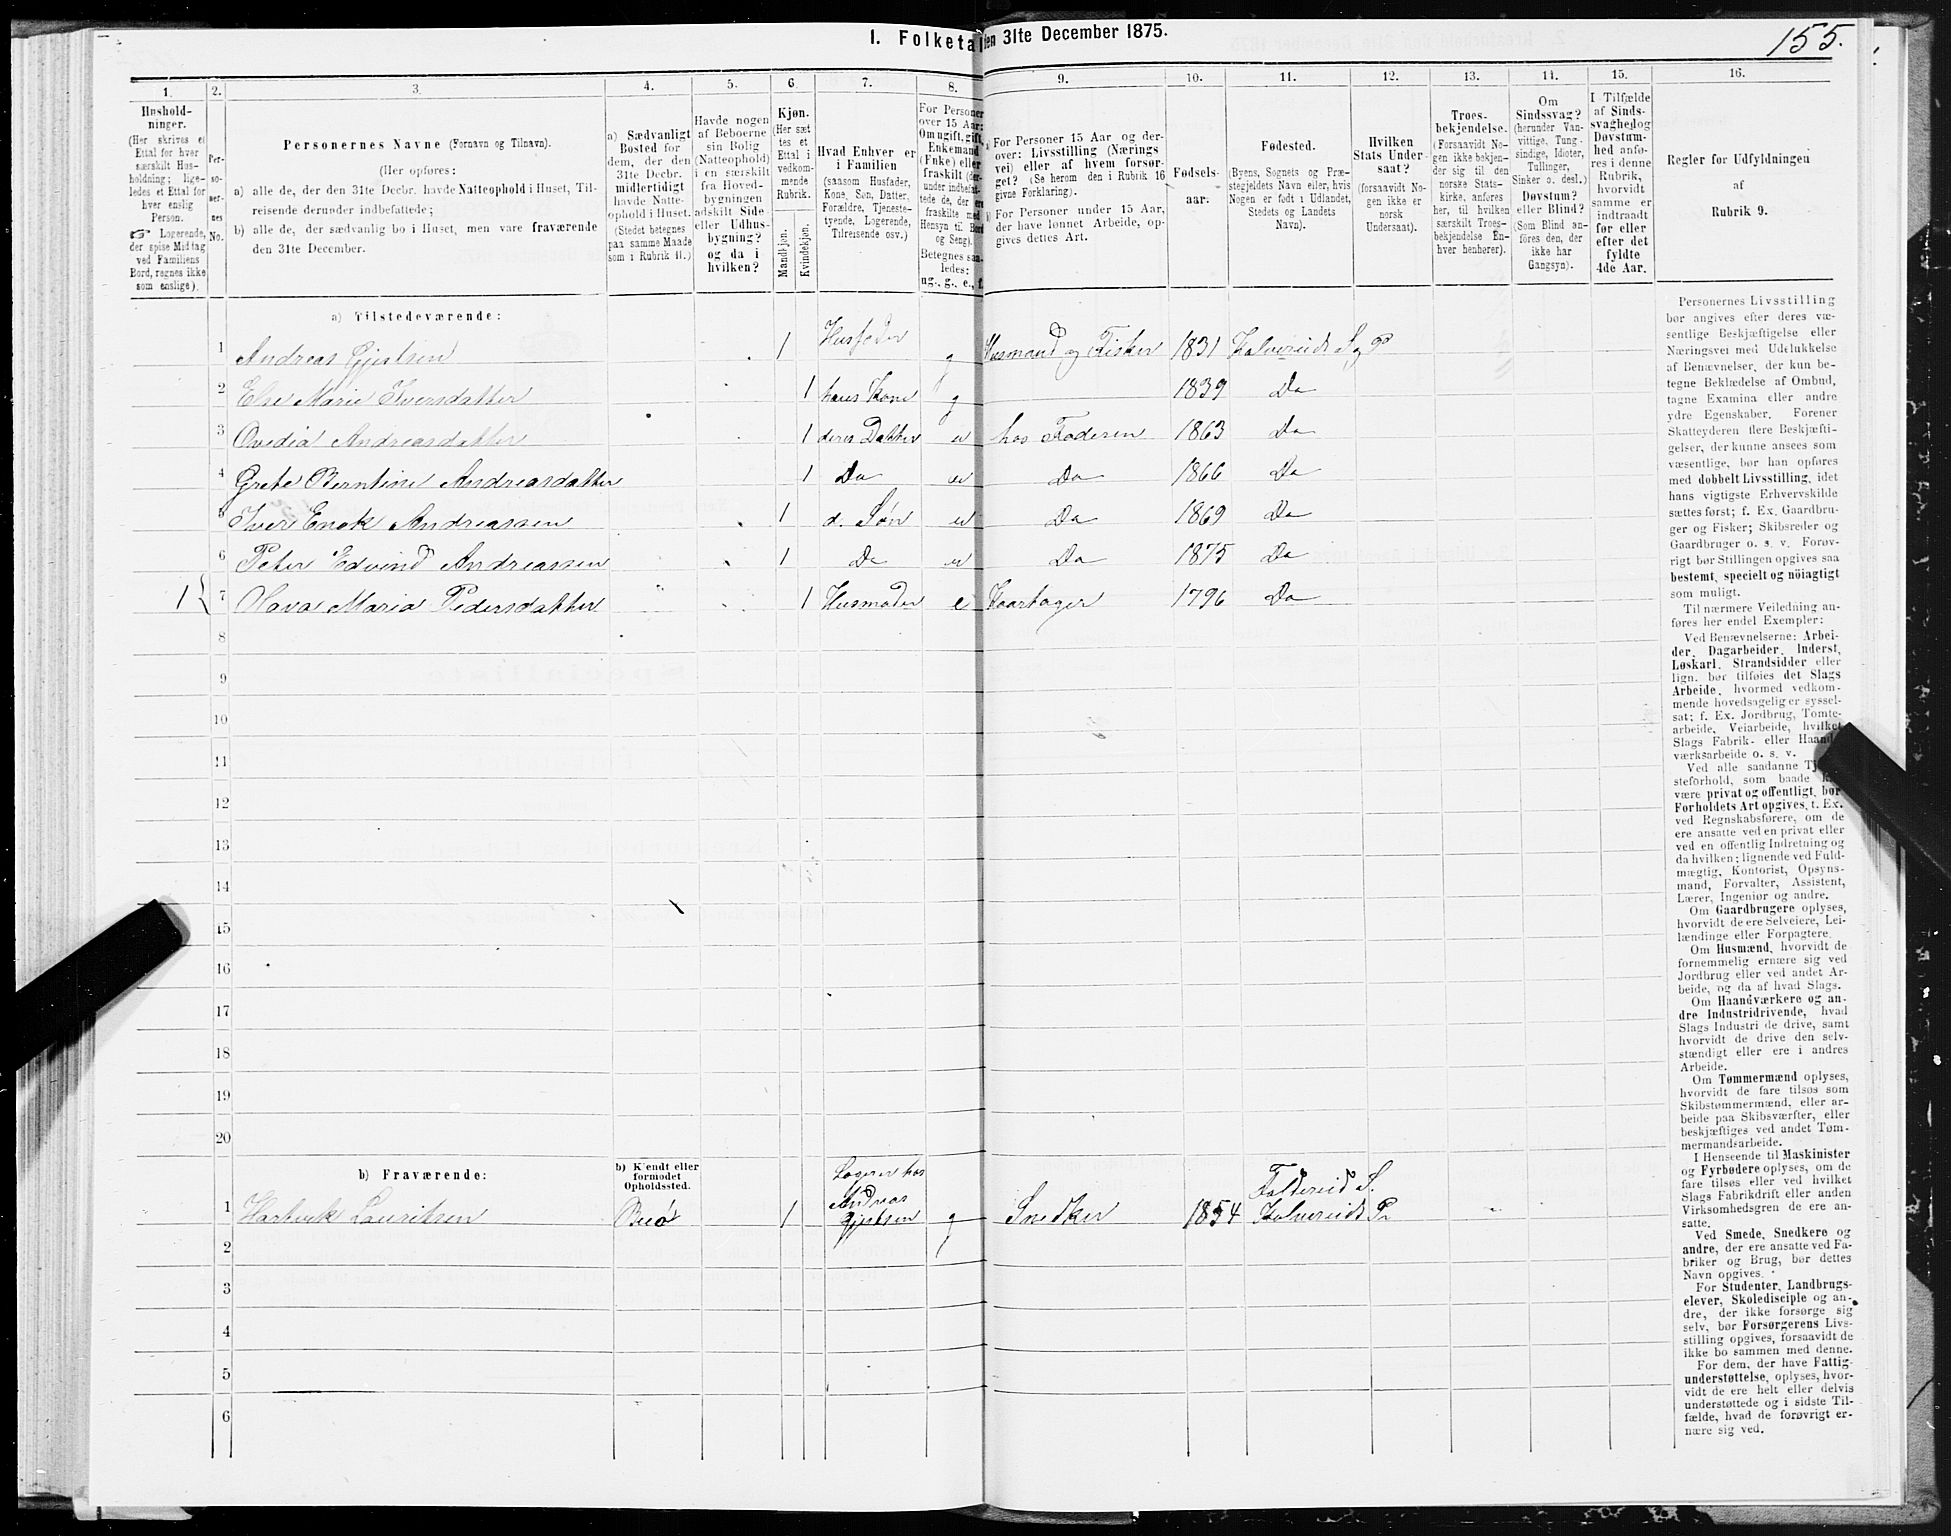 I. Folketa
den 31te December 1875.
155.
1.
2.
3.
4.
5.
6.
7.
8.
9.
10.
11.
12.
13.
14.
15.
16.
Hushold-
ninger.
(Her skrives et
Ettal for hver
særskilt Hus-
holdning; lige-
ledes et Ettal for
hver enslig
Person.
☞ Logerende,
der spise Middag
ved Familiens
Bord, regnes ikke
som enslige).
Per-
so-
ner-
nes
No.
Personernes Navne (Fornavn og Tilnavn).
(Her opføres:
a) alle de, der den 31te Decbr. havde Natteophold i Huset, Til-
reisende derunder indbefattede;
b) alle de, der sædvanlig bo i Huset, men vare fraværende
den 31te December.
a) Sædvanligt
Bosted for
dem, der den
31te Decbr.
midlertidigt
havde Natte-
ophold i Huset.
(Stedet betegnes
paa samme Maade
som i Rubrik 11.)
Havde nogen
af Beboerne
sin Bolig
(Natteophold)
i en særskilt
fra Hoved-
bygningen
adskilt Side-
eller Udhus-
bygning?
og da i
hvilken?
Kjøn.
(Her sæt-
tes et
Ettal i
vedkom-
mende
Rubrik.
Mandkjøn.
Kvindekjøn.
Hvad Enhver er
i Familien
(saasom Husfader,
Kone, Søn, Datter,
Forældre, Tjeneste-
tyende, Logerende,
Tilreisende osv.)
For Personer
over 15 Aar:
Om ugift, gift,
Enkemand
(Enke) eller
fraskilt (der-
under indbefat-
tede de, der ere
fraskilte med
Hensyn til Bord
og Seng).
Betegnes saa-
ledes:
ug., g., e., f.
a) For Personer 15 Aar og der-
over: Livsstilling (Nærings-
vei) eller af hvem forsør-
get? (Se herom den i Rubrik 16
givne Forklaring).
b) For Personer under 15 Aar,
der have lønnet Arbeide, op-
gives dettes Art.
Fødsels-
aar.
Fødested.
(Byens, Sognets og Præ-
stegjeldets Navn eller, hvis
Nogen er født i Udlandet,
Stedets og Landets
Navn).
Hvilken
Stats Under-
saat?
(forsaavidt No-
gen ikke er
norsk
Undersaat).
Troes-
bekjendelse.
(Forsaavidt No-
gen ikke bekjen-
der sig til den
norske Stats-
kirke, anføres
her, til hvilken
særskilt Troes-
bekjendelse En-
hver henhører).
Om
Sindssvag?
(herunder Van-
vittige, Tung-
sindige, Idioter,
Tullinger,
Sinker o. desl.)
Døvstum?
eller Blind?
(Som Blind an-
føres den, der
ikke har
Gangsyn).
I Tilfælde
af Sinds-
svaghed og
Døvstum-
hed anfø-
res i denne
Rubrik,
hvorvidt
samme er
indtraadt
før eller
efter det
fyldte
4de Aar.
Regler for Udfyldningen
af
Rubrik 9.
a) Tilstedeværende:
1 Andreas Gjertsen 1 Husfader g Husmand og Fisker 1831 Kolvereids S og P
2 Else Marie Iversdatter 1 hans Kone g 1839 Do
3 Ovedia Andreasdatter 1 deres Datter u hos Faderen 1863 Do
4 Grete Berntine Andreasdatter 1 Do u Do 1866 Do
5 Iver Enok Andreassen 1 d. Søn u Do 1869 Do
6 Peter Edvind Andreassen 1 Do u Do 1875 Do
1 { 7 Olava Maria Pedersdatter 1 Husmoder e Kaartager 1796 Do
8
9
10
11
12
13
14
15
16
17
18
19
20
b) Fraværende:
b) Kjendt eller
formodet
Opholdssted.
1 Hartvik Lauritsen 1 Logerer hos
Andreas
Gjertsen g Snedker 1854 Foldereid S.
Kolvereids P
2
3
4
5
6
Personernes Livsstilling
bør angives efter deres væ-
sentlige Beskjæftigelse eller
Næringsvei med Udelukkelse
af Benævnelser, der kun be-
tegne Beklædelse af Ombud,
tagne Examina eller andre
ydre Egenskaber. Forener
Skatteyderen flere Beskjæfti-
gelser, der kunne ansees som
væsentlige, bør han opføres
med dobbelt Livsstilling, idet
hans vigtigste Erhvervskilde
sættes først; f. Ex. Gaardbru-
ger og Fisker; Skibsreder og
Gaardbruger o. s. v. Forøv-
rigt bør Stillingen opgives saa
bestemt, specielt og nöiagtigt
som muligt.
Til nærmere Veiledning an-
føres her endel Exempler:
Ved Benævnelserne: Arbei-
der, Dagarbeider, Inderst,
Løskarl, Strandsidder eller
lign. bør tilføies det Slags
Arbeide, hvormed vedkom-
mende hovedsagelig er syssel-
sat; f. Ex. Jordbrug, Tomte-
arbeide, Veiarbeide, hvilket
Slags Fabrik- eller Haand-
værksarbeide o. s. v.
Ved alle saadanne Tje-
steforhold, som baade
være privat og offentligt, bør
Forholdets Art opgives, t. Ex.
ved Regnskabsførere, om de
ere ansatte ved en privat eller
ved en offentlig Indretning og
da hvilken; lignende ved Fuld-
mægtig, Kontorist, Opsyns-
mand, Forvalter, Assistent,
Lærer, Ingeniør og andre.
Om Gaardbrugere oplyses,
hvorvidt de ere Selveiere, Lei-
lændinge eller Forpagtere.
Om Husmænd, hvorvidt de
fornemmelig ernære sig ved
Jordbrug eller ved andet Ar-
beide, og da af hvad Slags.
Om Haandværkere og an-
dre Industridrivende, hvad
Slags Industri de drive, samt
hvorvidt de drive den selv-
stændigt eller ere i andres
Arbeide.
Om Tømmermænd oplyses,
hvorvidt de fare tilsøs som
Skibstømmermænd, eller ar-
beide paa Skibsværfter, eller
beskjæftiges ved andet Tøm-
mermandsarbeide.
I Henseende til Maskinister
og Fyrbødere oplyses, om de
fare tilsøs eller ved hvilket
Slags Fabrikdrift eller anden
Virksomhedsgren de ere an-
satte.
Ved Smede, Snedkere og
andre, der ere ansatte ved Fa-
briker og Brug, bør dettes
Navn opgives.
For Studenter, Landbrugs-
elever, Skoledisciple og an-
dre, der ikke forsørge sig
selv, bør Forsørgerens Livs-
stilling opgives, forsaavidt de
ikke bo sammen med denne.
For dem, der have Fattig-
understøttelse, oplyses, hvor-
vidt de ere helt eller delvis
understøttede og i sidste Til-
fælde, hvad de forøvrigt er-
nære sig ved.